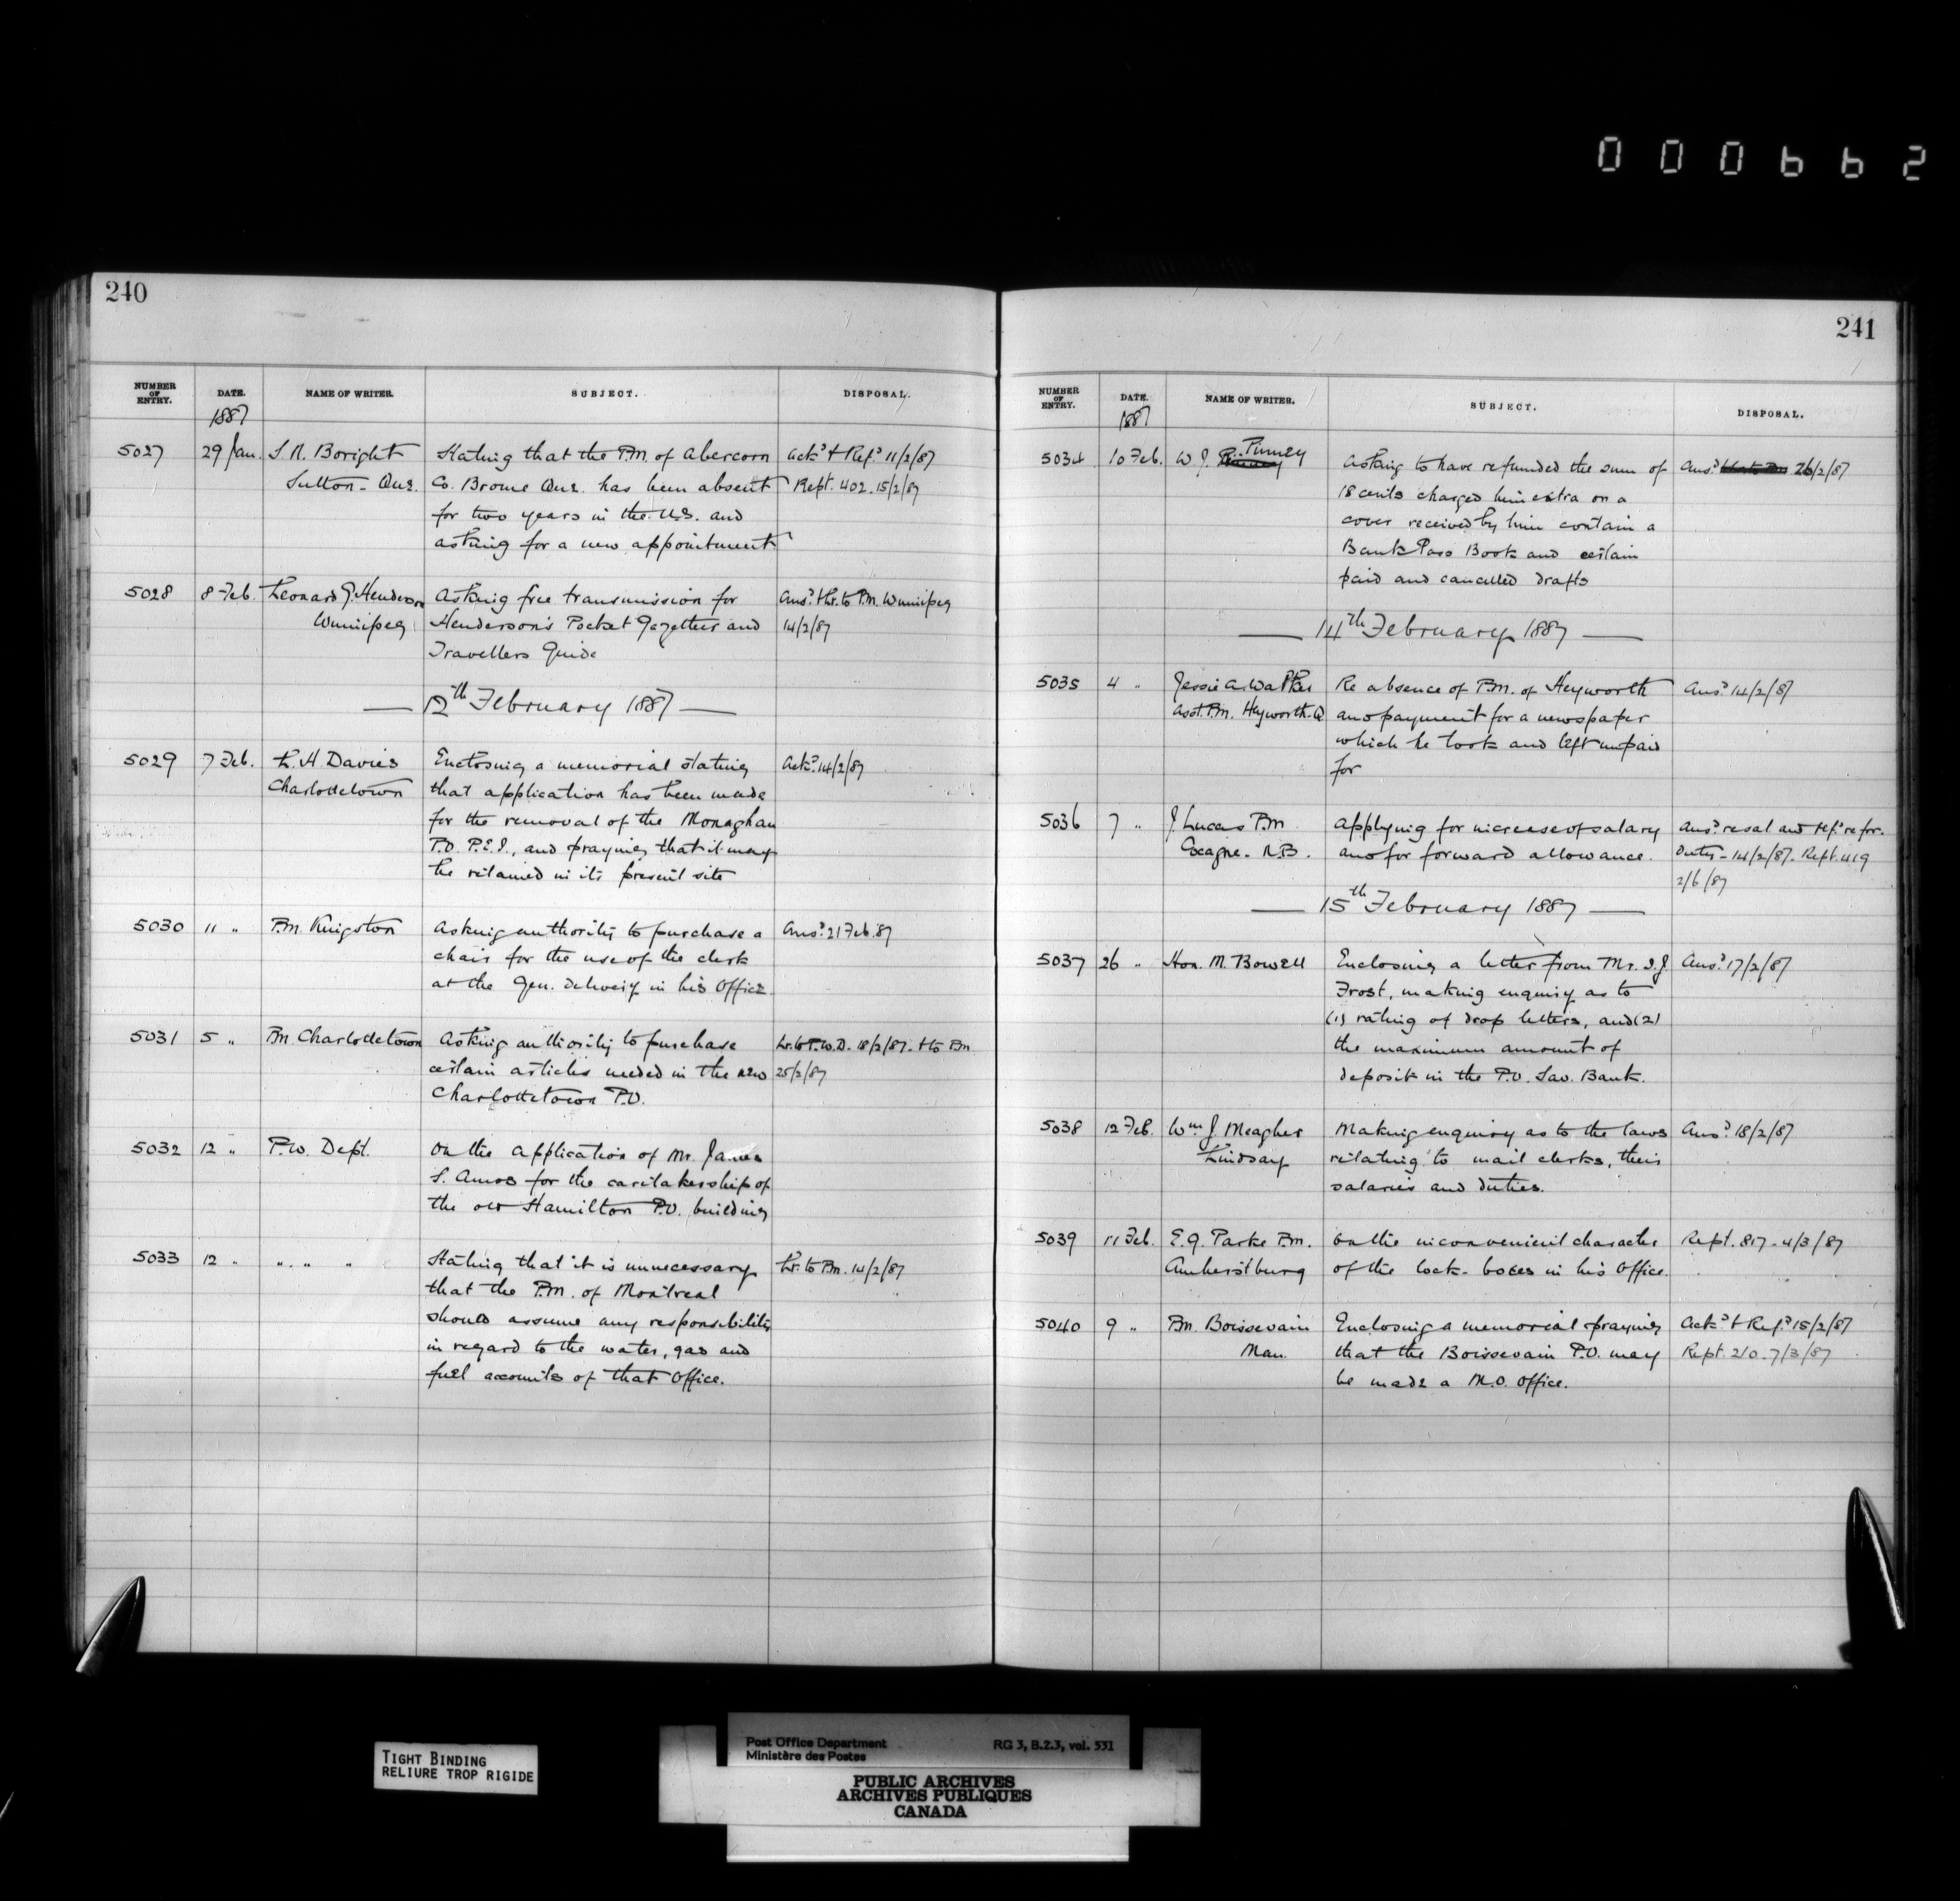 000662
240
NUMBER OF ENTRY. DATE. NAME OF WRITER. SUBJECT. DISPOSAL.
1887
5027 29 Jan. S. N. Boright Stating that the P.M. of Abercorn Ack.d & Ref.d 11/2/87
Sutton - Que. Co. Brome Que. has been absent Rept. 402. 15/2/87
for two years in the U.S. and
asking for a new appointment
5028 8 Feb. Leonard G. Henderson Asking free transmission for Ans.d & lr. to P.M. Winnipeg
Winnipeg Henderson's Pocket Gazetteer and 14/2/87
Travellers Guide
12th February 1887
5029 7 Feb. L. H. Davies Enclosing a memorial stating Ack.d 14/2/87
Charlottetown that application has been made
for the removal of the Monaghan
P.O. P.E.I., and praying that it may
be retained in its present site
5030 11 " P.M. Kingston Asking authority to purchase a Ans.d 21 Feb. 87
chair for the use of the clerk
at the Gen. Delivery in his Office.
5031 5 " P.M. Charlottetown Asking authority to purchase Lr. to P.W.D. 18/2/87. & to P.M.
certain articles needed in the new 25/2/87
Charlottetown P.O.
5032 12 " P.W. Dept. On the application of Mr. James
S. Amos for the caretakership of
the old Hamilton P.O. building
5033 12 " " " " Stating that it is unnecessary Lr. to P.M. 14/2/87
that the P.M. of Montreal
should assume any responsibility
in regard to the water, gas and
fuel accounts of that Office.
241
NUMBER OF ENTRY. DATE. NAME OF WRITER. SUBJECT. DISPOSAL.
1887
5034 10 Feb. W. J. Pinney Asking to have refunded the sum of Ans.d 26/2/87
18 cents charged him extra on a
cover received by him contain a
Bank Pass Book and certain
paid and cancelled drafts
14th February 1887
5035 4 " Jessie A. Walker Re absence of P.M. of Heyworth Ans.d 14/2/87
Asst. P.M. Heyworth. Q and payment for a newspaper
which he took and left unpaid
for
5036 7 " J. Lucas P.M. Applying for increase of salary Ans.d re sal and ref.d re for.
Cocagne. N.B. and for forward allowance. Duty - 14/2/87. Rept. 419
2/6/87
15th February 1887
5037 26 " Hon. M. Bowell Enclosing a letter from Mr. I. J. Ans.d 17/2/87
Frost, making enquiry as to
(1) rating of drop letters, and (2)
the maximum amount of
deposit in the P.O. Sav. Bank.
5038 12 Feb. Wm. J. Meagher Making enquiry as to the laws Ans.d 18/2/87
Lindsay relating to mail clerks, their
salaries and duties.
5039 11 Feb. E. G. Parke P.M. On the inconvenient character Rept. 817 - 4/3/87
Amherstburg of the lock-boxes in his Office.
5040 9 " P.M. Boissevain Enclosing a memorial praying Ack.d & Ref.d 15/2/87
Man. that the Boissevain P.O. may Rept. 210. 7/3/87
be made a M.O. Office.
TIGHT BINDING
RELIURE TROP RIGIDE
Post Office Department RG 3, B.2.3, vol. 531
Ministère des Postes
PUBLIC ARCHIVES
ARCHIVES PUBLIQUES
CANADA